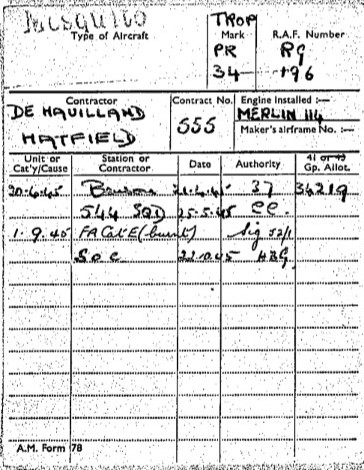 MOSQUITO
Type of Aircraft
TROP
Mark
PR
34
R.A.F. Number
RG
196
Contractor
DE HAVILLAND
HATFIELD
Contract No.
555
Engine Installed :—
MERLIN 114
Maker's airframe No. :—
Unit or Cat'y/Cause
Station or Contractor
Date
Authority
41 or 43 Gp. Allot.
Benson 21.4.45 37 34219
544 SQD 25.5.45 CC.
1.9.45 FA Cat E (burnt) Sig 52/1
SOC 22.10.45 HBG
A.M. Form 78